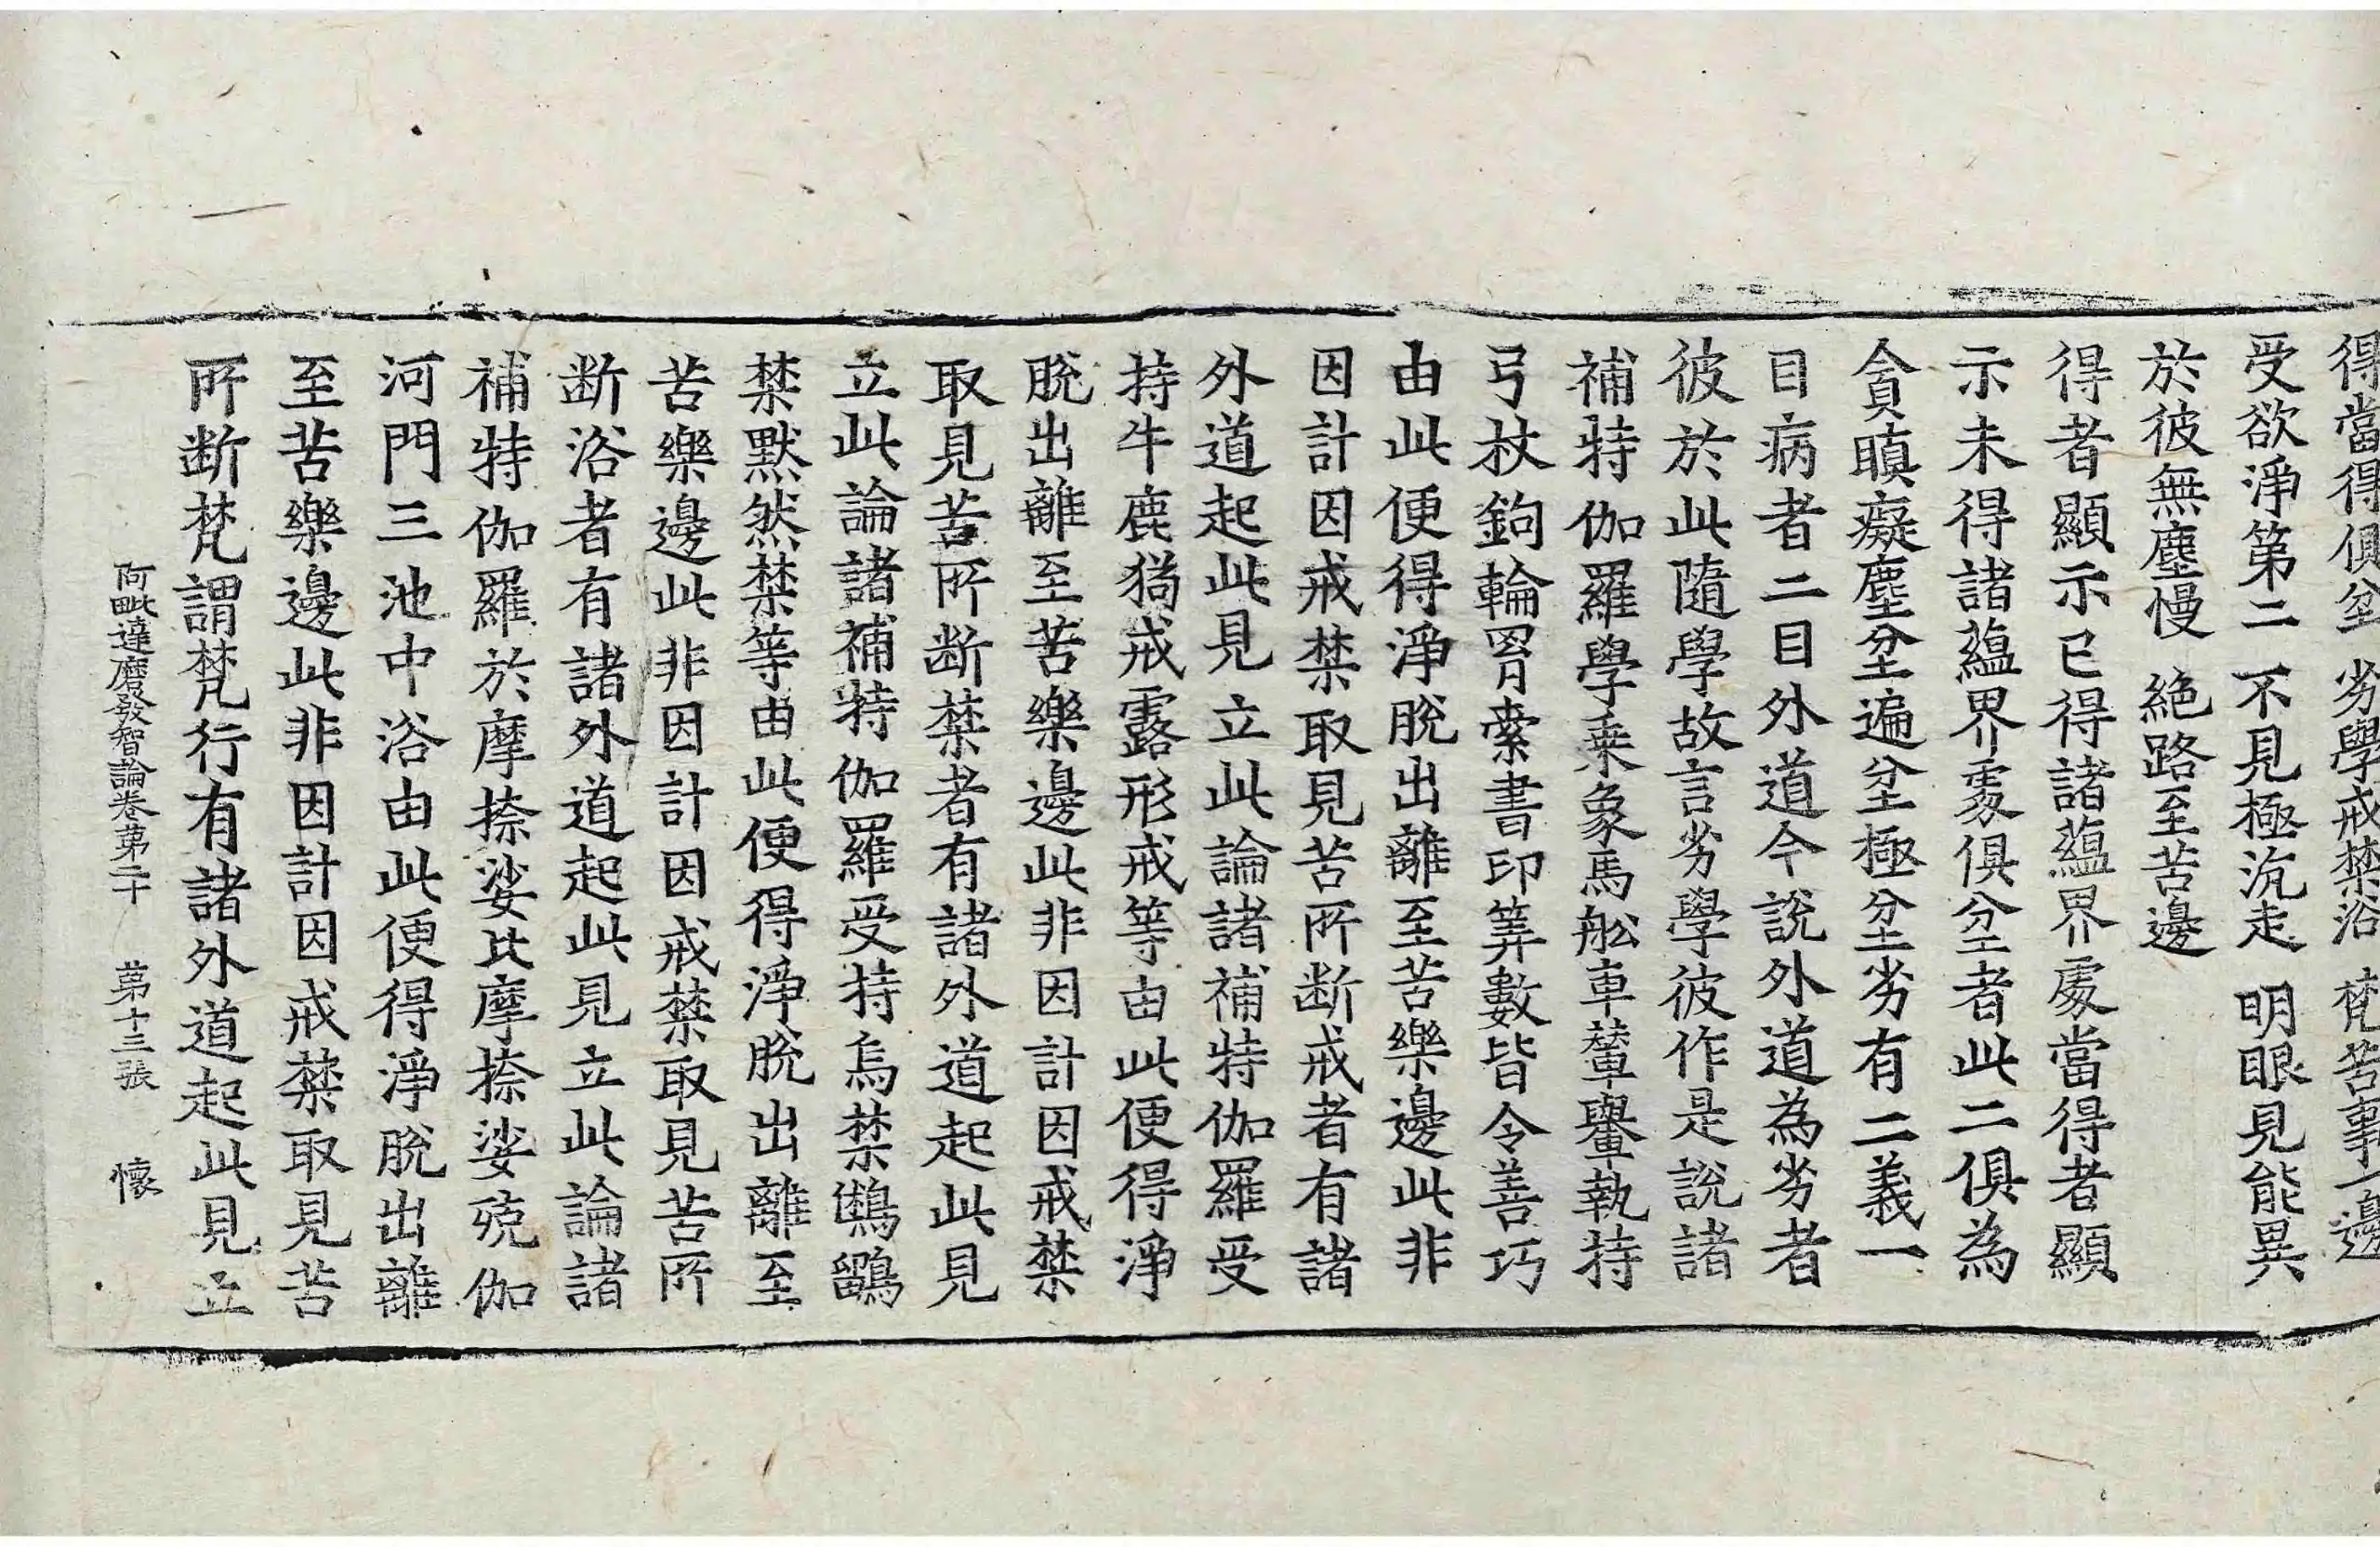 得當得俱坌　劣學戒禁浴　梵苦事一邊
受欲淨第二　不見極沉走　明眼見能異
於彼無塵慢　絕路至苦邊
得者顯示已得諸蘊界處當得者顯
示未得諸蘊界處俱坌者此二俱為
貪瞋癡塵坌遍坌極坌劣有二義一
目病者二目外道今說外道為劣者
彼於此隨學故言劣學彼作是說諸
補特伽羅學乗象馬舩車輦轝執持
弓杖鉤輪罥索書印筭數皆令善巧
由此便得淨脫出離至苦樂邊此非
因計因戒禁取見苦所断戒者有諸
外道起此見立此論諸補特伽羅受
持牛鹿猲戒露形戒等由此便得淨
脫出離至苦樂邊此非因計因戒禁
取見苦所断禁者有諸外道起此見
立此論諸補特伽羅受持烏禁鵂鶹
禁默然禁等由此便得淨脫出離至
苦樂邊此非因計因戒禁取見苦所
断浴者有諸外道起此見立此論諸
補特伽羅於摩捺娑比摩捺娑殑伽
河門三池中浴由此便得淨脫出離
至苦樂邊此非因計因戒禁取見苦
所断梵謂梵行有諸外道起此見立
阿毗達磨發智論卷第二十　第十三張　懷